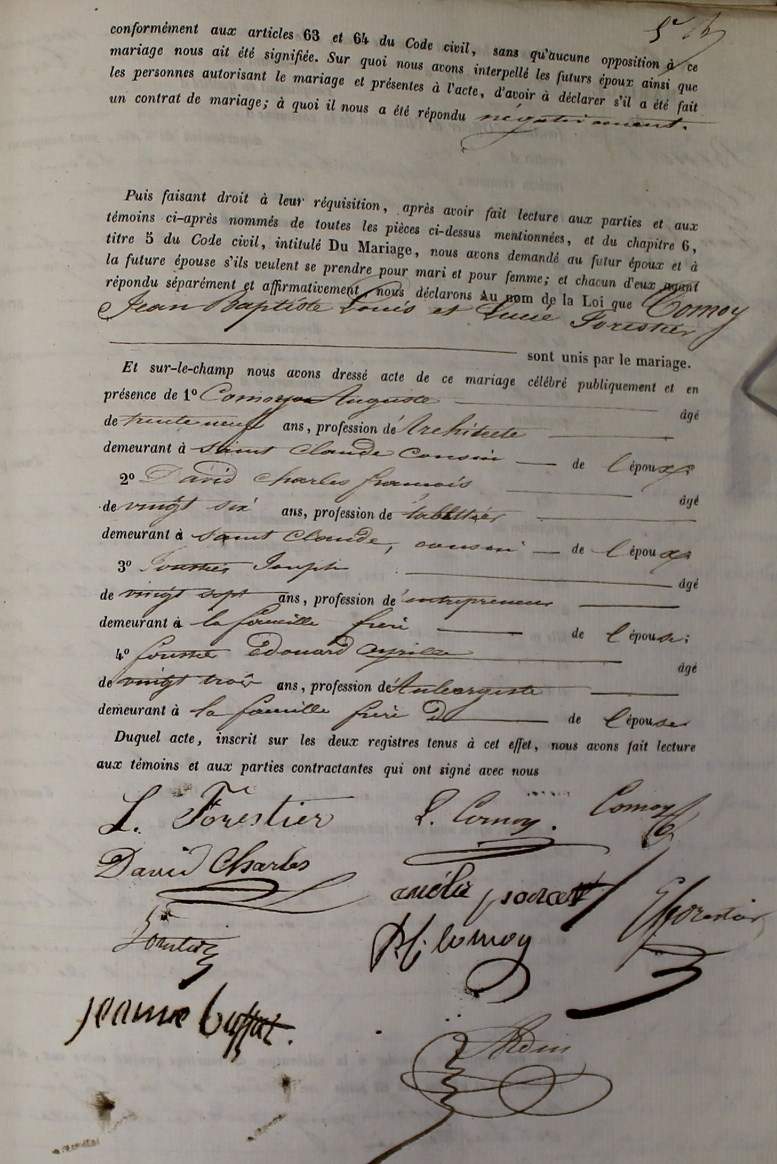 conformément aux articles 63 et 64 du Code civil, sans qu'aucune opposition à ce
mariage nous ait été signifiée. Sur quoi nous avons interpellé les futurs époux ainsi que
les personnes autorisant le mariage et présentes à l'acte, d'avoir à déclarer s'il a été fait
un contrat de mariage; à quoi il nous a été répondu négativement.
Puis faisant droit à leur réquisition, après avoir fait lecture aux parties et aux
témoins ci-après nommés de toutes les pièces ci-dessus mentionnées, et du chapitre 6,
titre 5 du Code civil, intitulé Du Mariage, nous avons demandé au futur époux et à
la future épouse s'ils veulent se prendre pour mari et pour femme; et chacun d'eux ayant
répondu séparément et affirmativement, nous déclarons Au nom de la Loi que Comoy
Jean Baptiste Louis et Lucie Forestier
sont unis par le mariage.
Et sur-le-champ nous avons dressé acte de ce mariage célébré publiquement et en
présence de 1º Comoy Auguste âgé
de trente neuf ans, profession d'Architecte
demeurant à Saint Claude cousin de l'époux
2º David Charles françois âgé
de vingt six ans, profession de tabletier
demeurant à Saint Claude, cousin de l'époux
3º Joseph âgé
de vingt sept ans, profession d'entrepreneur
demeurant à la frère de l'épouse
4º Edouard âgé
de vingt trois ans, profession d'Aubergiste
demeurant à la frère de l'épouse
Duquel acte, inscrit sur les deux registres tenus à cet effet, nous avons fait lecture
aux témoins et aux parties contractantes qui ont signé avec nous
L. Forestier L. Comoy. Comoy
David Charles
Comoy E Forestier
jeanne buffat.